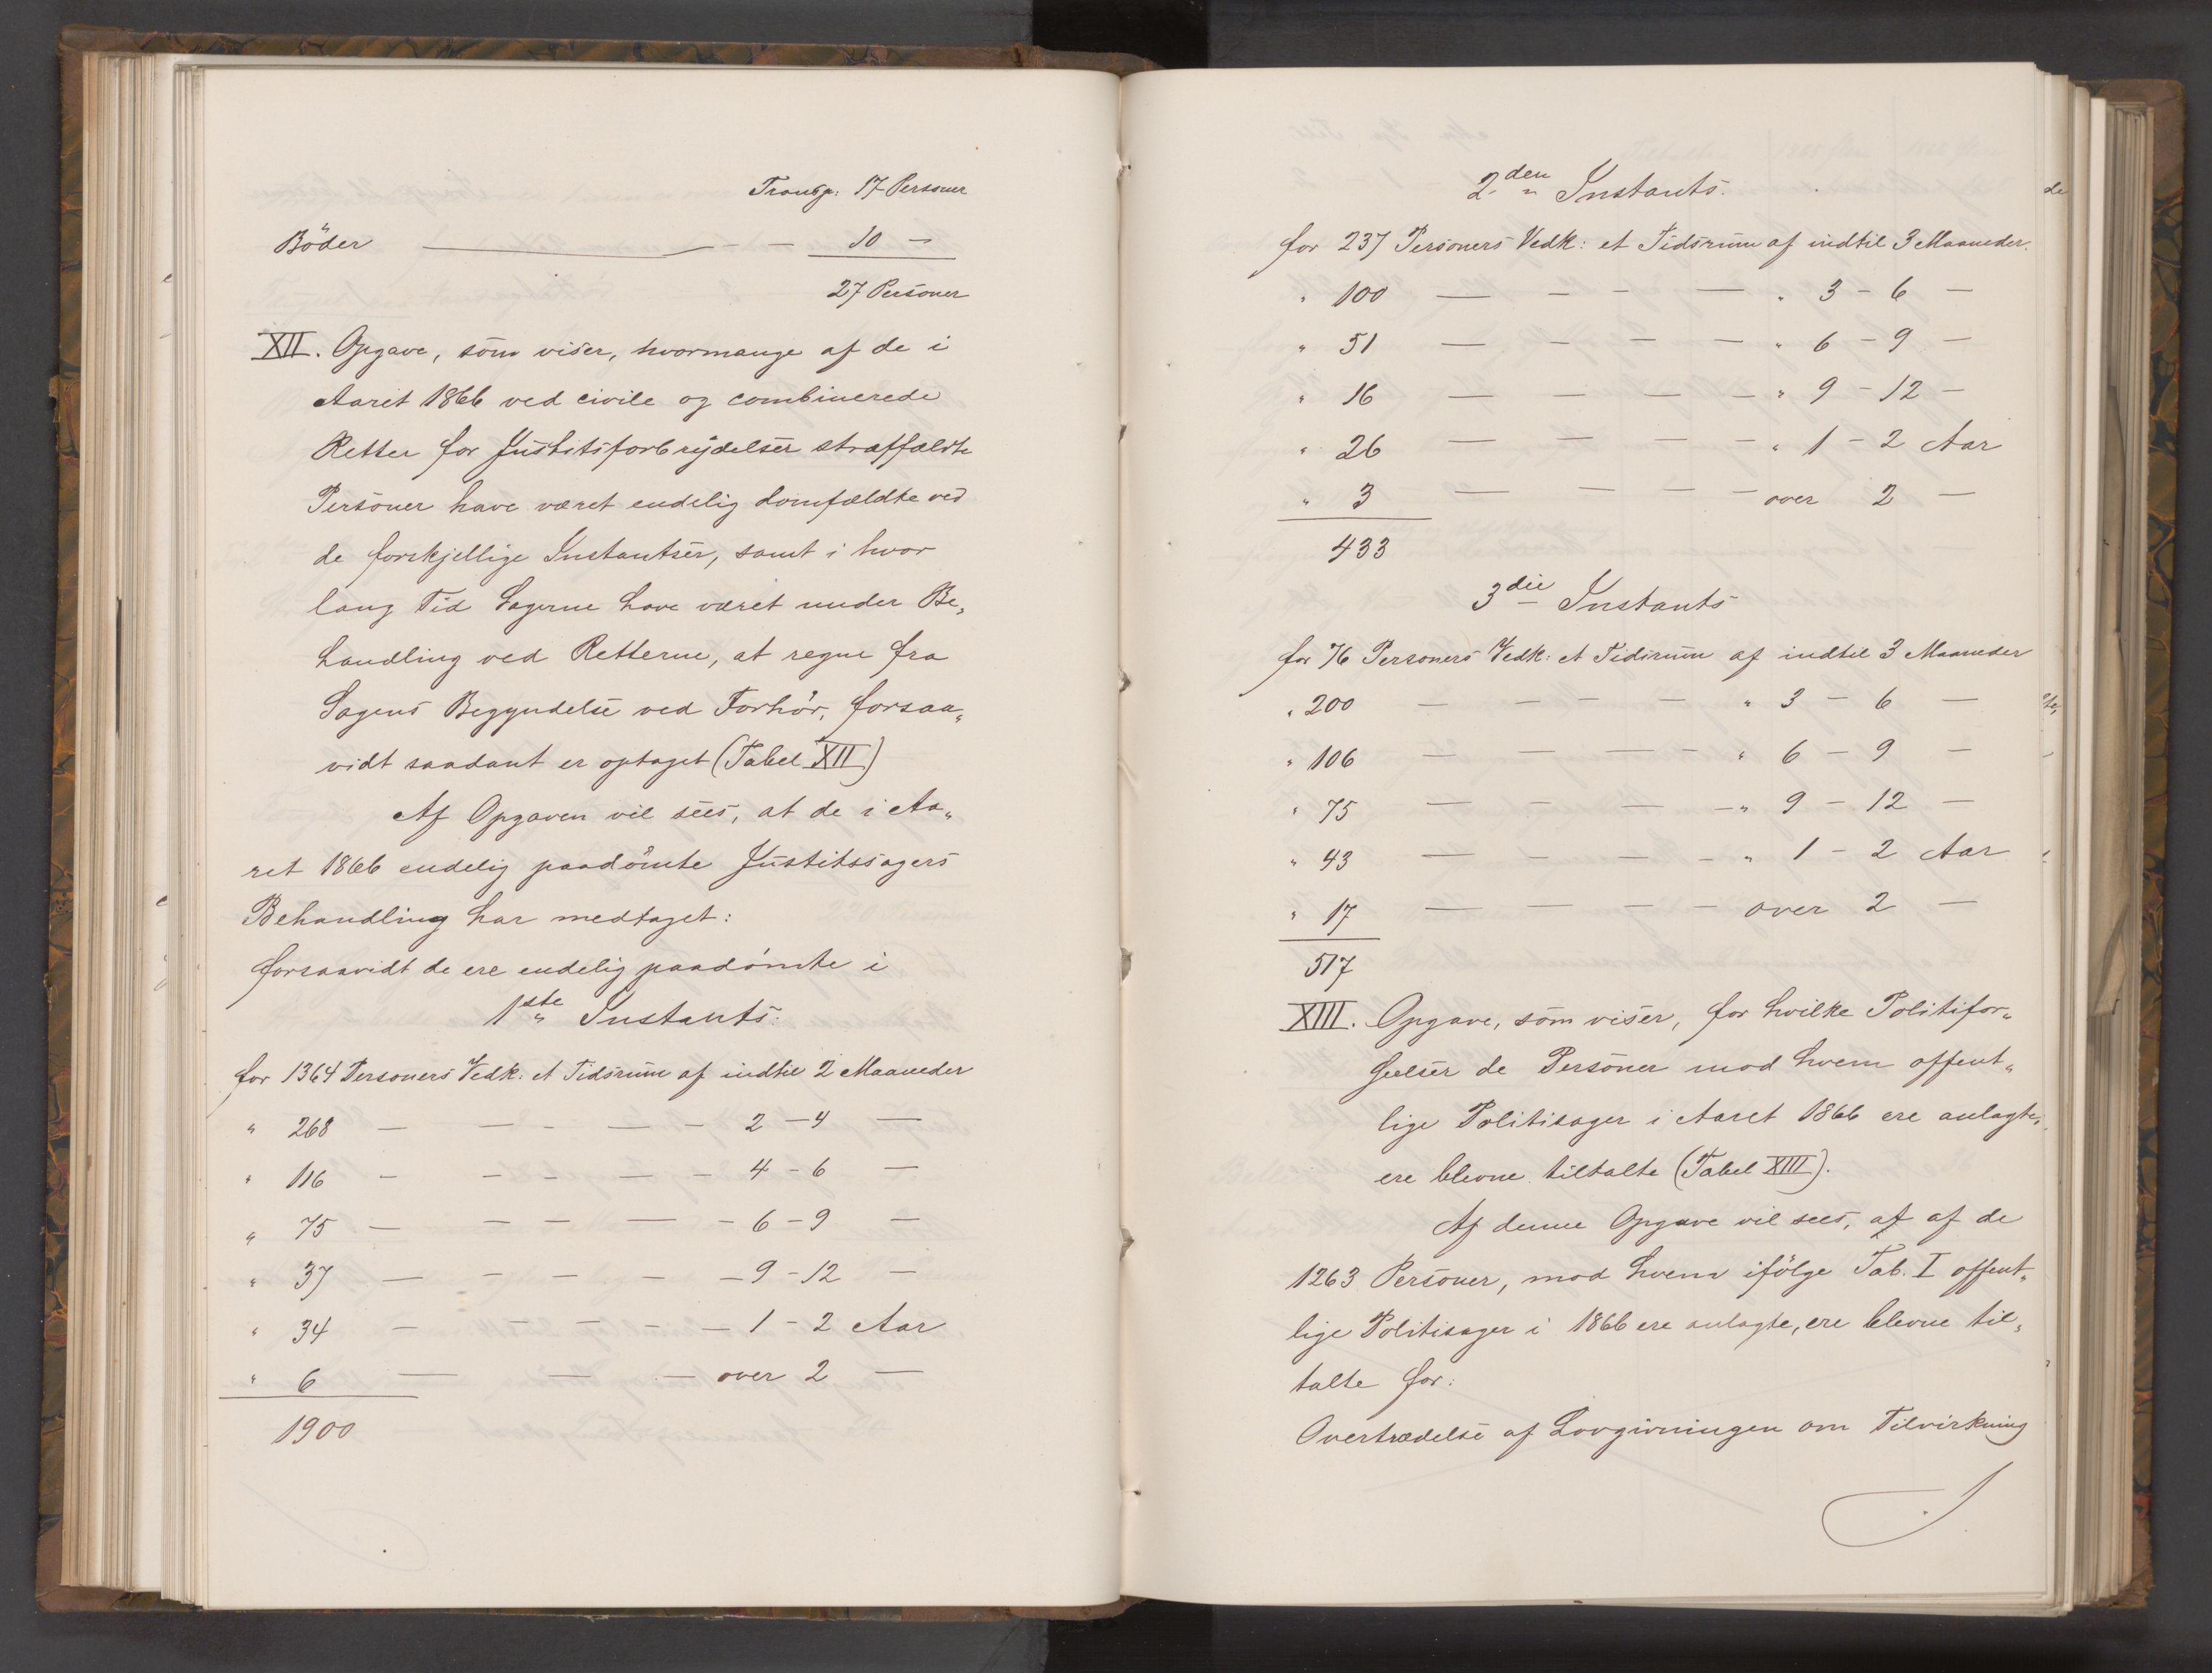 Transp: 17 Personer
Böder — — — 10 —
27 Personer
XII. Opgave, som viser, hvormange af de i
Aaret 1866 ved civile og combinerede
Retter for Justitsforbrydelser straffældte
Personer have været endelig domfældte ved
de forskjellige Instantser, samt i hvor
lang Tid Sagerne have været under Be„
handling ved Retterne, at regne fra
Sagens Begyndelse ved Forhör, forsaa„
vidt saadant er optaget (Tabel XII)
Af Opgaven vil sees, at de i Aa„
ret 1866 endelig paadömte Justitssagers
Behandling har medtaget:
forsaavidt de ere endelig paadömte i
1ste Instants:
for 1364 Personers Vedk: et Tidsrum af indtil 2 Maaneder
" 268 — — - — - 2 — 4 —
" 116 - — - — - 4 - 6 —
" 75 — — — — - 6 - 9 —
" 37 — - — - — 9 - 12 —
" 34 — - — - — 1 - 2 Aar
" 6 — — — over 2 —
1900
2den Instants.
for 237 Personers Vedk: et Tidsrum af indtil 3 Maaneder.
" 100 — — - — " 3 - 6 —
" 51 — — — — " 6 - 9 —
" 16 — — — — " 9 - 12 —
" 26 — — — — " 1 - 2 Aar
" 3 — — — — over 2 —
433
3die Instants
for 76 Personers Vedk: et Tidsrum af indtil 3 Maaneder
" 200 — — — — " 3 — 6 —
" 106 — — — - " 6 - 9 —
" 75 — — — — " 9 - 12 —
" 43 — - — - " 1 - 2 Aar
" 17 — — — — over 2 —
517
XIII. Opgave, som viser, for hvilke Politifor„
seelser de Personer mod hvem offent„
lige Politisager i Aaret 1866 ere anlagte,
ere blevne tiltalte (Tabel XIII).
Af denne Opgave vil sees, at af de
1263 Personer, mod hvem ifölge Tab. I offent„
lige Politisager i 1866 ere anlagte, ere blevne til„
talte for:
Overtrædelse af Lovgivningen om Tilvirkning